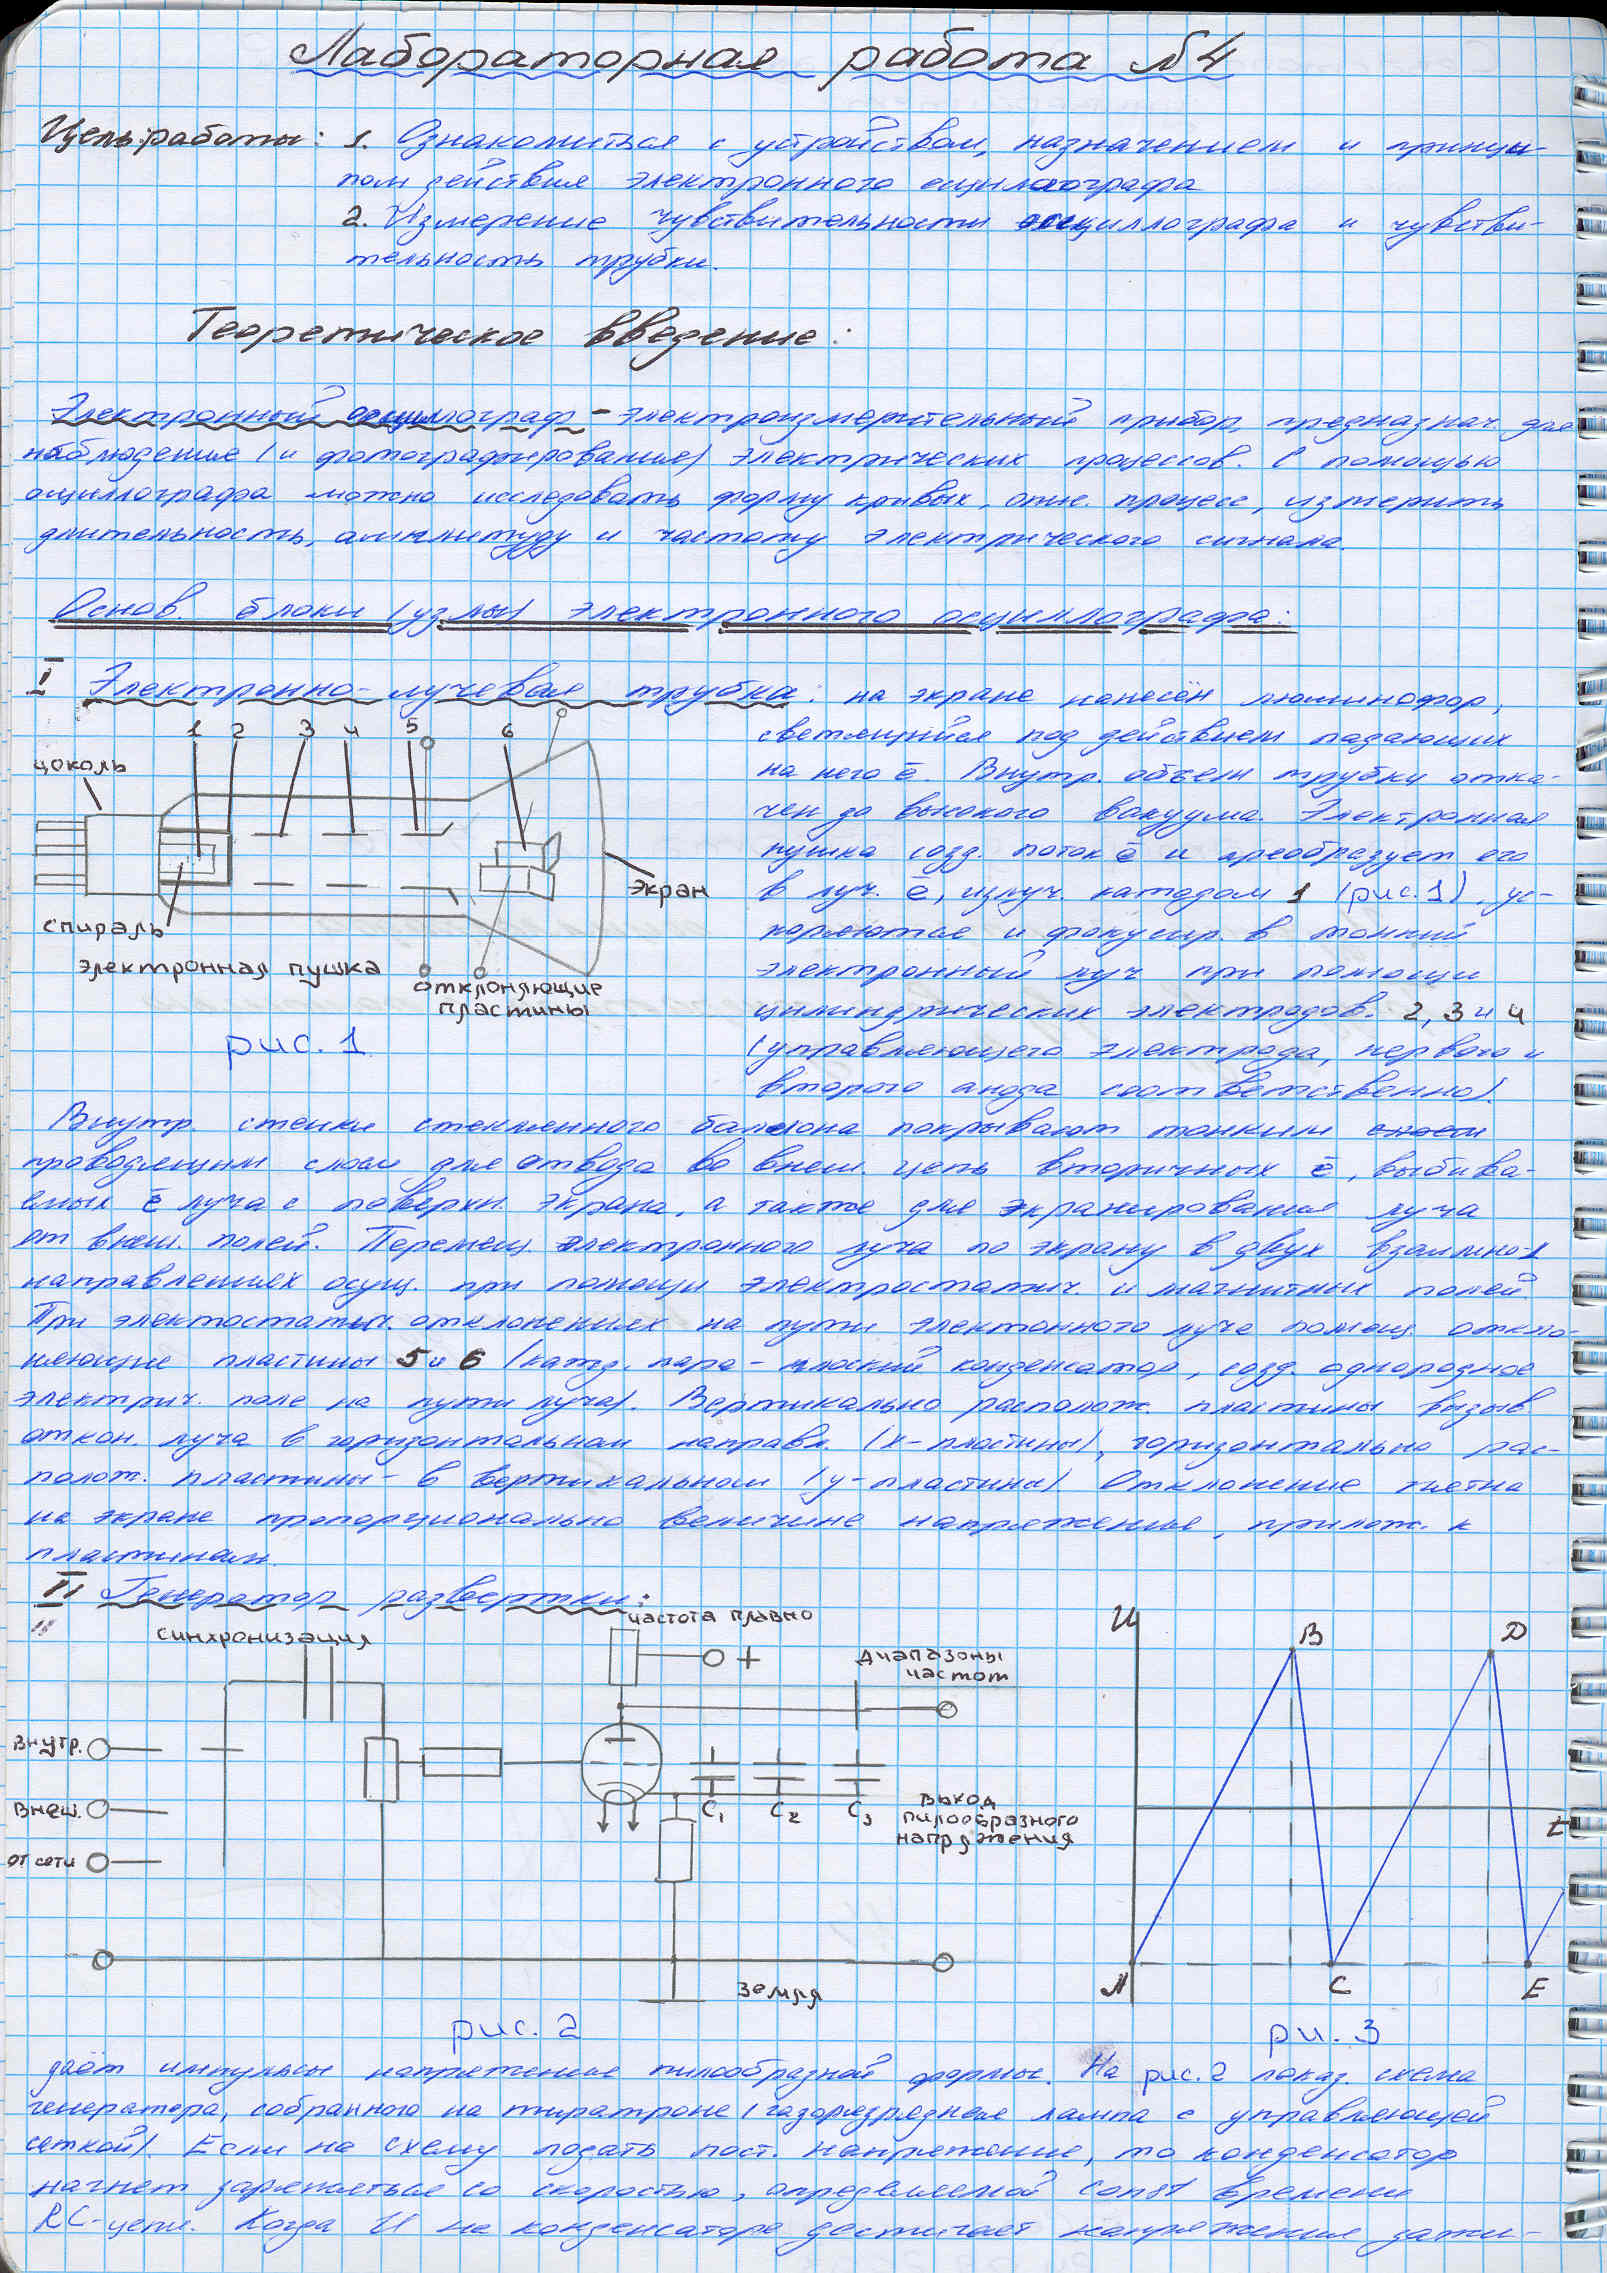 Лабораторная работа №4
Цель работы: 1. Ознакомиться с устройством, назначением и принцы-
пом действия электронного осцилографа
2. Измерение чувствительности осциллографа и чувстви-
тельность трубки.
Теоретическое введение:
Электронный осциллограф - электроизмерительный прибор, предназнач. для
наблюдения (и фотографирования) электрических процессов. С помощью
осциллографа можно исследовать форму кривых, опис. процесс, измерить
длительность, амплитуду и частоту электрического сигнала.
Основ. блоки (узлы) электронного осциллографа:
I Электронно-лучевая трубка: на экране нанесён люминофор,
светящийся под действием падающих
на него ē. Внутр. объем трубки отка-
чен до высокого вакуума. Электронная
пушка созд. поток ē и преобразует его
в луч. ē, излуч. катодом 1 (рис. 1), ус-
коряются и фокусир. в тонкий
электронный луч при помощи
цилиндрических электродов. 2, 3 и 4
(управляющего электрода, первого и
второго анода соответственно).
1 2 3 4 5 6
цоколь
экран
спираль
электронная пушка
отклоняющие
пластины
рис. 1
Внутр. стенки стеклянного баллона покрывают тонким
проводящим слоем для отвода во внеш. цепь вторичных ē, выбива-
емых ē луча с поверхн. экрана, а также для экранирования луча
от внеш. полей. Перемещ. электронного луча по экрану в двух взаимно-⊥
направлениях осущ. при помощи электростатич. и магнитных полей.
При электостатич. отклонениях на пути электонного луча помещ. откло-
няющие пластины 5 и 6 (кажд. пара - плоский конденсатор, созд. однородное
электрич. поле на пути луча). Вертикально располож. пластины вызыв.
откон. луча в горизонтальном направл. (x-пластины), горизонтально рас-
полож. пластины - в вертикальном (y-пластина). Отклонение пятна
на экране пропорционально величине напряжения, прилож. к
пластинам.
II Генератор развертки:
частота плавно
синхронизация
+
диапазоны
частот
внутр.
внеш.
от сети
C1 C2 C3
выход
пилообразного
напряжения
земля
рис. 2
U
B
D
t
A
C
E
ри. 3
даёт импульсы напряжение пилообразной формы. На рис. 2 показ. схема
генератора, собранного на тиратроне (газоразрядная лампа с управляющей
сеткой). Если на схему подать пост. напряжение, то конденсатор
начнет заряжаться со скоростью, определяемой const времени
RC-цепи. Когда U на конденсаторе достигает напряжения зажи-